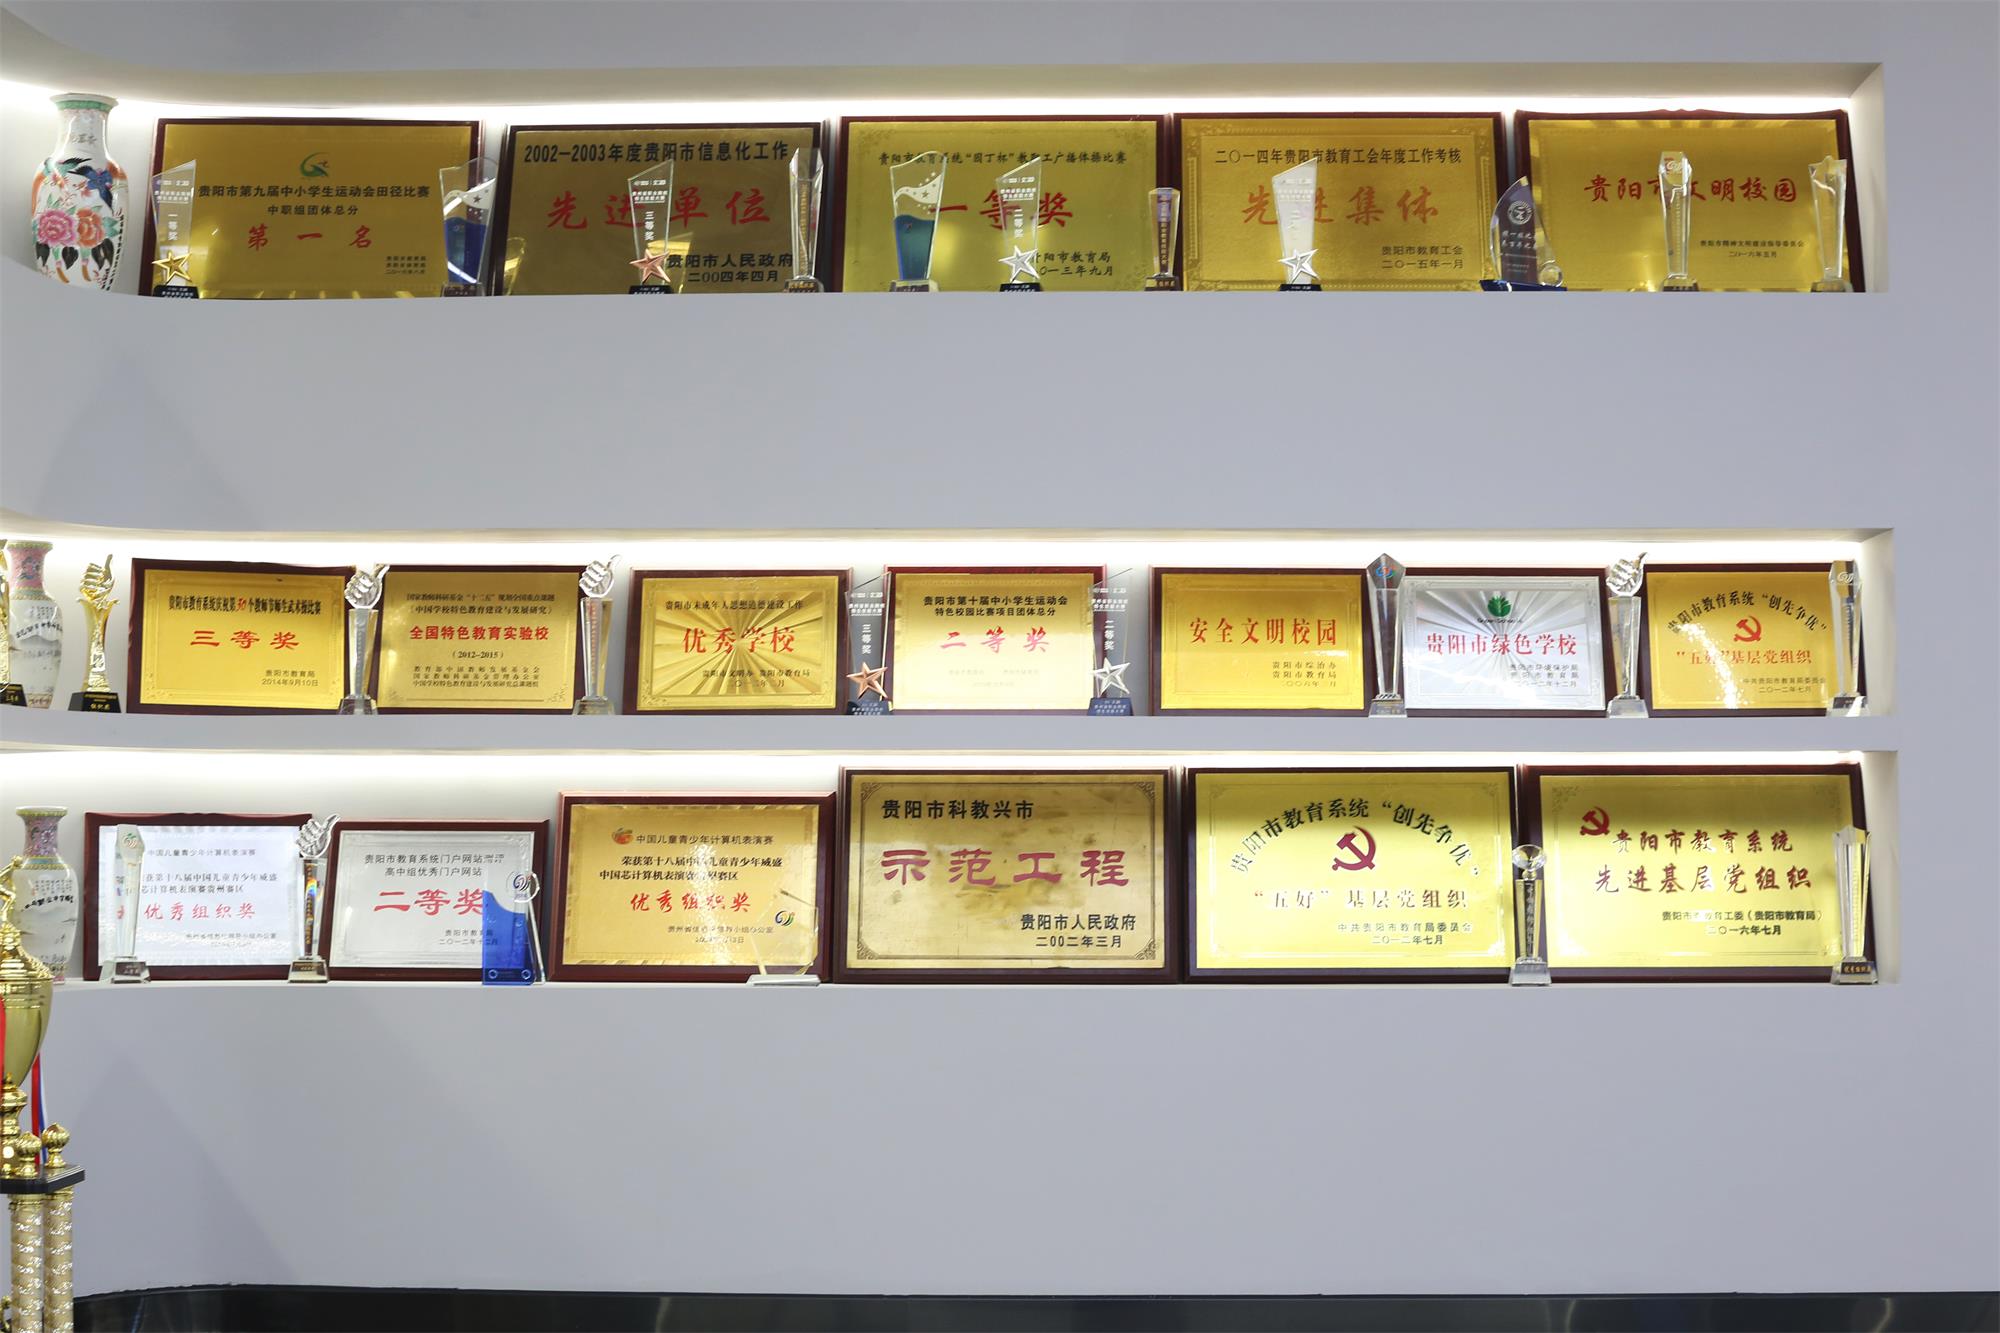 贵阳市第九届中小学生运动会田径比赛
中职组团体总分
第一名
一等奖
2002—2003年度贵阳市信息化工作
先进单位
贵阳市人民政府
二00四年四月
三等奖
贵阳市教育系统“园丁杯”教职工广播体操比赛
一等奖
贵阳市教育局
二〇一三年九月
二等奖
二〇一四年贵阳市教育工会年度工作考核
先进集体
贵阳市教育工会
二〇一五年一月
贵阳市文明校园
贵阳市精神文明建设指导委员会
二〇一六年五月
贵阳市教育系统庆祝第30个教师节师生武术操比赛
三等奖
贵阳市教育局
2014年9月10日
国家教师科研基金“十二五”规划全国重点课题
《中国学校特色教育建设与发展研究》
全国特色教育实验校
（2012-2015）
教育部中国教师发展基金会
国家教师科研基金管理办公室
中国学校特色教育建设与发展研究总课题组
贵阳市未成年人思想道德建设工作
优秀学校
贵阳市文明办 贵阳市教育局
三等奖
贵阳市第十届中小学生运动会
特色校园比赛项目团体总分
二等奖
二等奖
安全文明校园
贵阳市综治办
贵阳市教育局
贵阳市绿色学校
贵阳市环境保护局
贵阳市教育局
二〇一二年十二月
贵阳市教育系统“创先争优”
“五好”基层党组织
中共贵阳市教育局委员会
二〇一二年七月
中国儿童青少年计算机表演赛
获第十八届中国儿童青少年威盛
芯计算机表演赛贵州赛区
优秀组织奖
贵阳市教育系统门户网站测评
高中组优秀门户网站
二等奖
贵阳市教育局
二〇一二年十二月
中国儿童青少年计算机表演赛
荣获第十八届中国儿童青少年威盛
中国芯计算机表演赛贵州赛区
优秀组织奖
贵阳市科教兴市
示范工程
贵阳市人民政府
二00二年三月
贵阳市教育系统“创先争优”
“五好”基层党组织
中共贵阳市教育局委员会
二〇一二年七月
贵阳市教育系统
先进基层党组织
贵阳市教育工委（贵阳市教育局）
二〇一六年七月